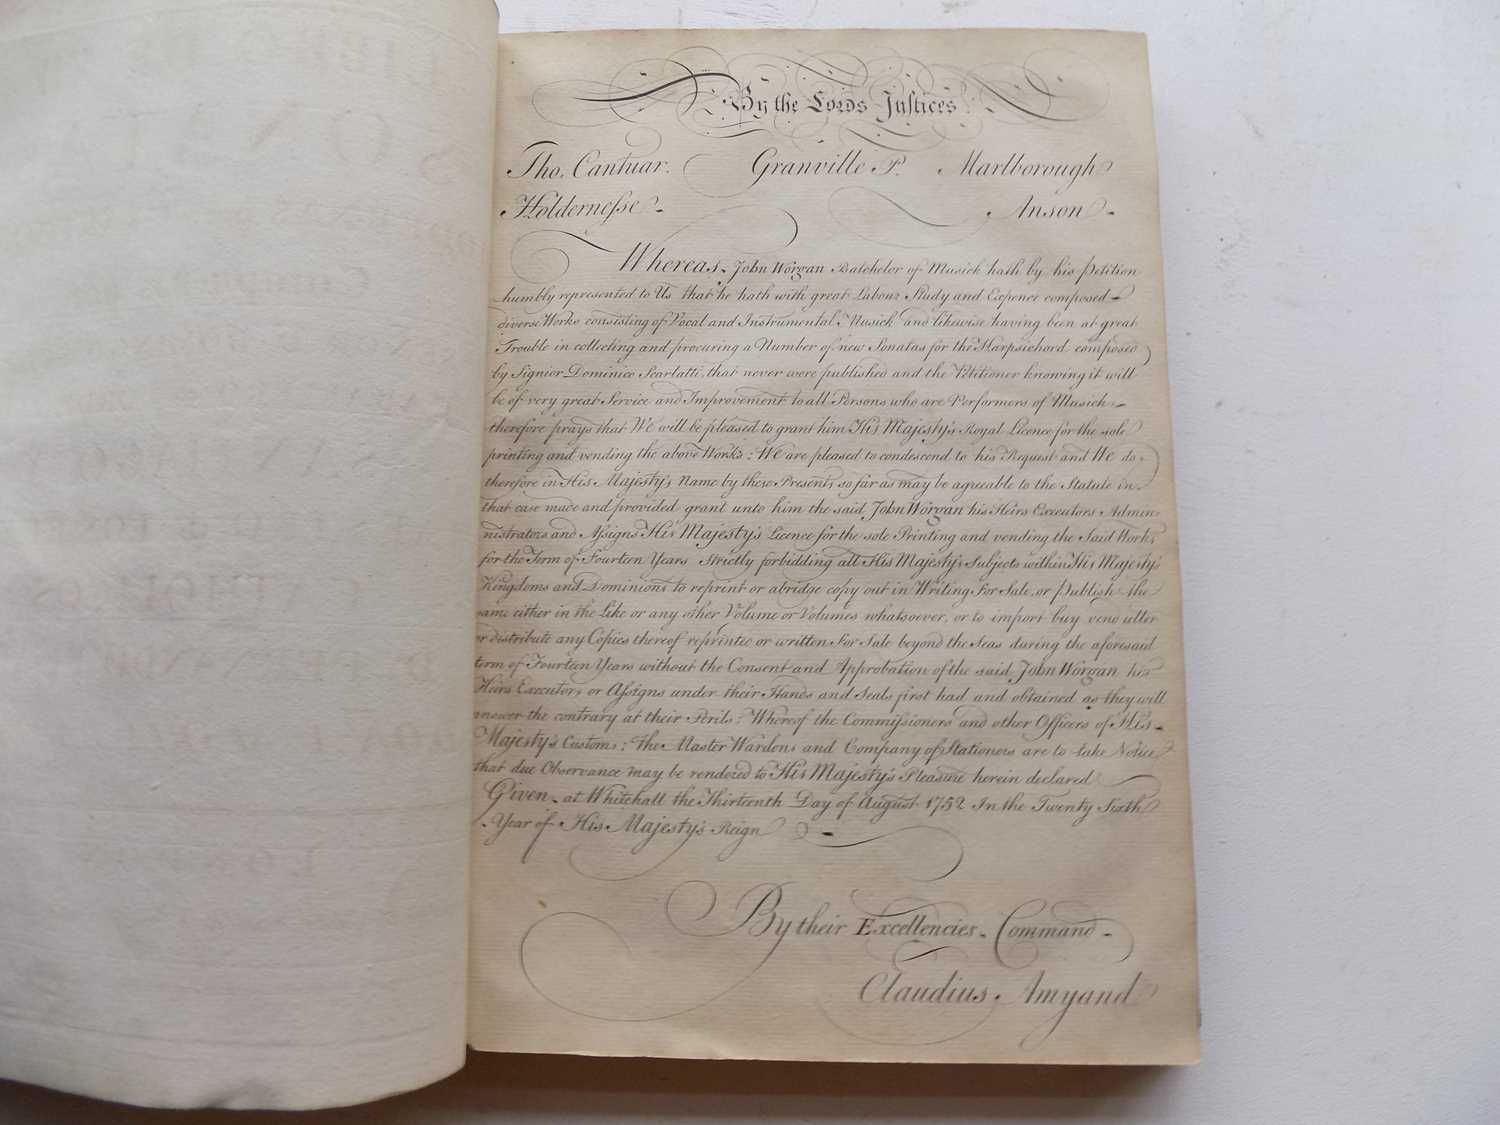 By the Lords Justices
Tho. Cantuar. Granville P. Marlborough
Holdernesse Anson
Whereas John Worgan Batchelor of Musick hath by his Petition
humbly represented to Us that he hath with great Labour Study and Expence composed
diverse Works consisting of Vocal and Instrumental Musick and likewise having been at great
Trouble in collecting and procuring a Number of new Sonatas for the Harpsichord composed
by Signior Dominico Scarlatti, that never were published and the Petitioner knowing it will
be of very great Service and Improvement to all Persons who are Performers of Musick
therefore prays that We will be pleased to grant him His Majesty's Royal Licence for the sole
printing and vending the above Works: We are pleased to condescend to his Request and We do
therefore in His Majesty's Name by these Presents so far as may be agreeable to the Statute in
that case made and provided grant unto him the said John Worgan his Heirs Executors Admin
nistrators and Assigns His Majesty's Licence for the sole Printing and vending the Said Works
for the Term of Fourteen Years Strictly forbidding all His Majesty's Subjects within His Majesty's
Kingdoms and Dominions to reprint or abridge copy out in Writing For Sale, or Publish the
same either in the Like or any other Volume or Volumes whatsoever, or to import buy vend utter
or distribute any Copies thereof reprinted or written For Sale beyond the Seas during the aforesaid
term of Fourteen Years without the Consent and Approbation of the said John Worgan his
Heirs Executors or Assigns under their Hands and Seals first had and obtained as they will
answer the contrary at their Perils: Whereof the Commissioners and other Officers of His
Majesty's Customs: the Master Wardens and Company of Stationers are to take Notice
that due Observance may be rendered to His Majesty's Pleasure herein declared
Given at Whitehall the Thirteenth Day of August 1752 In the Twenty Sixth
Year of His Majesty's Reign
By their Excellencies Command
Claudius Amyand